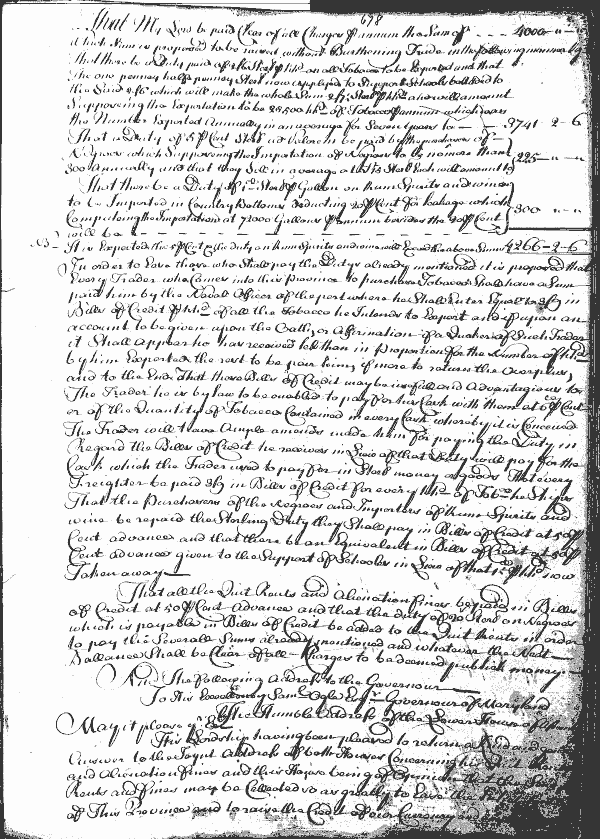 678
That My Lord be paid Clear of all Charges P annum the Sum of 4000 " - " -
Which Sum is proposed to be raised without Burthening Trade in the following manner
That there be a Duty paid of Sterl P hhd on all Tobacco to be Exported and that
The one penney half penney Sterl now applyed to Support Schools be added to
the Said 2/6 which will make the whole Sum Sterl P hhd and will amount
Supposing the Exportation to be 29,500 hhds of Tobacco P annum which was
the Number Exported Annually in an average for Seven Years to 3741 - 2 - 6
That a Duty of 5 P Cent Sterl ad Valorem be paid by the purchasers of
Negroes which Supposing the Importation of Negroes to be no more than 225 - " - "
300 Annually and that they Sell in average at Sterl Each will amount to
That there be a Duty of Sterl P Gallon on Rum Spirits and wine
to be Imported in Country Bottoms deducting 20 P Cent for leakage which
Computing the Importation at 72000 Gallons P annum besides the 20 P Cent 300 " - "
will be
It is Expected the 5 P Cent & the duty on Rum Spirits and wine will Exceed the above Sums 4266 - 2 - 6
In order to Ease those who Shall pay the Dutys already mentioned it is proposed that
Every Trader who Comes into this Province to purchase Tobacco Shall have a Sum
paid him by the Naval Officer of the port where he Shall Enter Equal to in
Bills of Credit P hhd of all the Tobacco he Intends to Export and if upon an
account to be given upon the Oath or Affirmation if a Quaker of Such Trader
it Shall appear he has received less than in Proportion for the Number of hhds
by him Exported the rest to be paid being if more to return the Overplus
and to the End That those Bills of Credit may be usefull and Advantagious to
The Trader he is by law to be enabled to pay for his Cask with them at P Cent
or of the Quantity of Tobacco Contained in every Cask whereby it is Conceived
The Trader will have Ample amends made him for paying the Duty in
Regard the Bills of Credit he receives in Lieu of that Duty will pay for the
Cask which the Trader used to pay for in Sterl money or goods That every
Freighter be paid in Bills of Credit for every hhd of Tobo he Ships
That the Purchasers of the Negroes and Importers of Rum Spirits and
wine be repaid the Sterling Duty they Shall pay in Bills of Credit at 50 P
Cent advance and that there be an Equivalent in Bills of Credit at 50 P
Cent advance given to the Support of Schools in Lieu of that P hhd now
Taken away
That all the Quit Rents and Alienation fines be paid in Bills
of Credit at 50 P Cent Advance and that the duty of Sterl on Negroes
which is payable in Bills of Credit be added to the Quit Rents in order
to pay the Severall Sums already mentioned and whatever the Neat
Ballance Shall be Clear of all Charges to be deemed publick money
And The Following Address to the Governour
To His Excellency Saml Ogle Esqr Governour of Maryland
The Humble Address of the Lower House of
May it please yr
His Lordship having been pleased to return a Kind and
Answer to the Joynt Address of both Houses Concerning his Quit
and Alienation fines and this House being of Opinion that the Said
Rents and fines may be Collected so as greatly to Ease the
of This Province and to raise the Credit of our Currency and